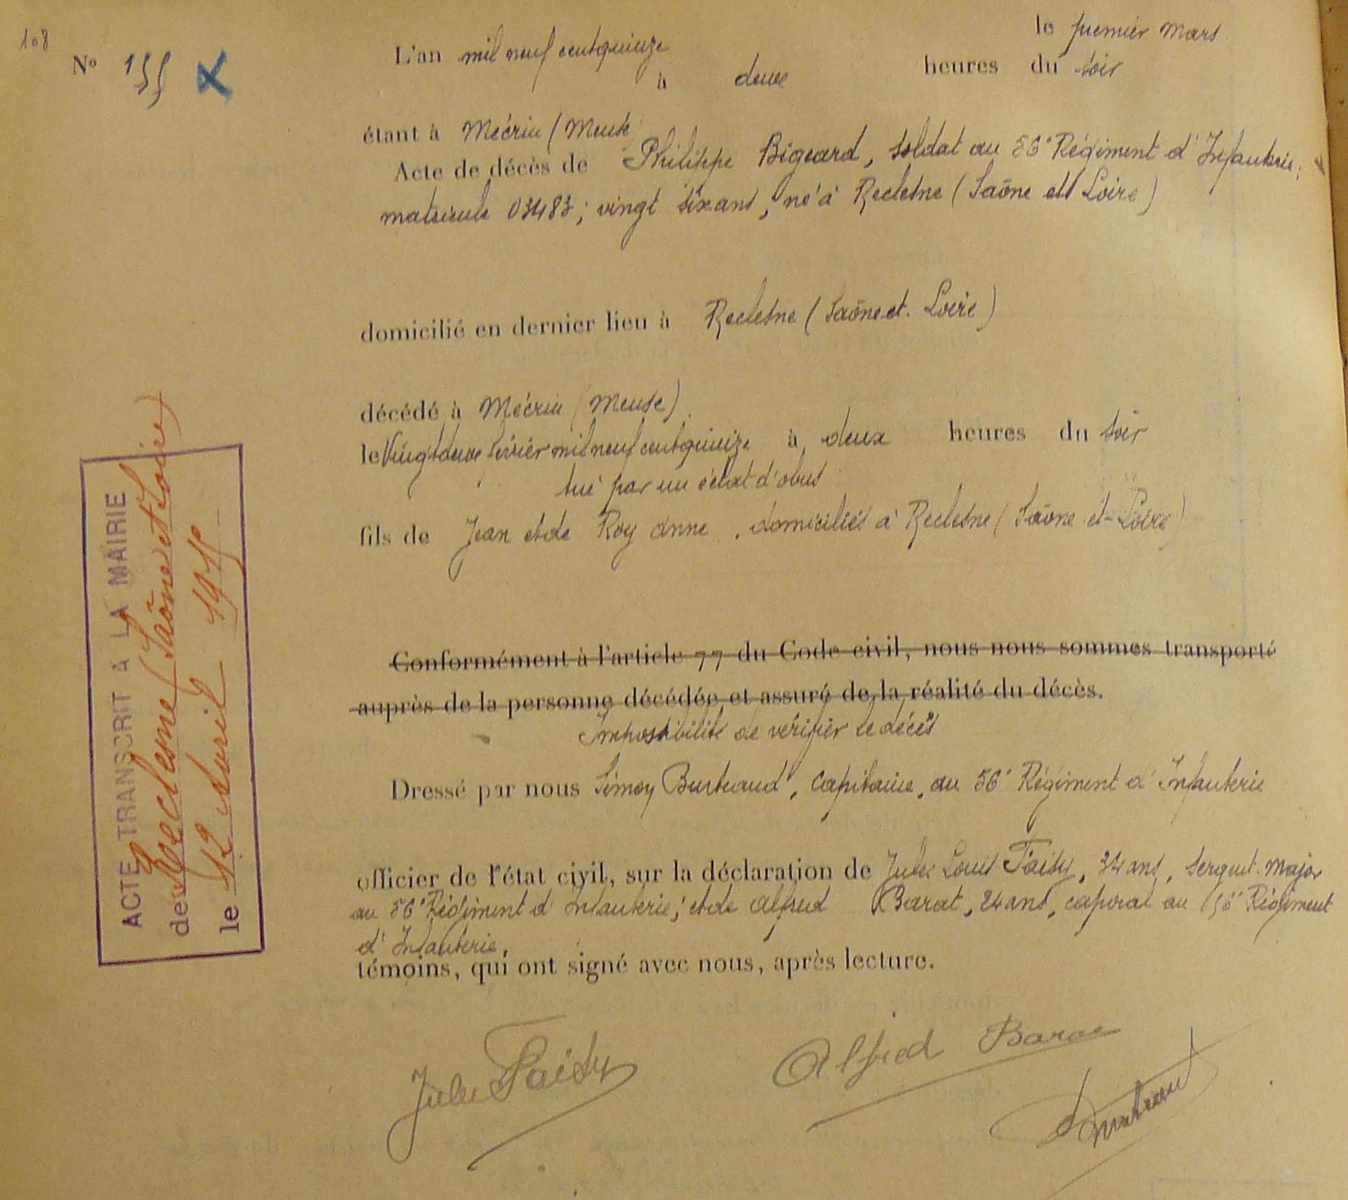 108
le premier mars
N° 155 L'an mil neuf cent quinze
à deux heures du soir
étant à Mécrin (Meuse
Acte de décès de Philippe Bigeard, soldat au 56e Régiment d'Infanterie,
matricule 03483; vingt six ans, né à Reclesne (Saône et Loire)
domicilié en dernier lieu à Reclesne (Saône et Loire)
décédé à Mécrin (Meuse)
le Vingt deux Février mil neuf cent quinze à deux heures du soir
tué par un éclat d'obus
fils de Jean et de Roy Anne, domiciliés à Reclesne (Saône et Loire)
Conformément à l'article 77 du Code civil, nous nous sommes transporté
auprès de la personne décédée et assuré de la réalité du décès.
Impossibilité de vérifier le décès
Dressé par nous Simon, capitaine, au 56e Régiment d'Infanterie
officier de l'état civil, sur la déclaration de Jules Louis, 34 ans, sergent-major
au 56e Régiment d'Infanterie; et de Alfred Barat, 24 ans, caporal au 56e Régiment
d'Infanterie,
témoins, qui ont signé avec nous, après lecture.
Jules
Alfred Barat
ACTE TRANSCRIT À LA MAIRIE
de Reclesne (Saône et Loire)
le 12 avril 1915